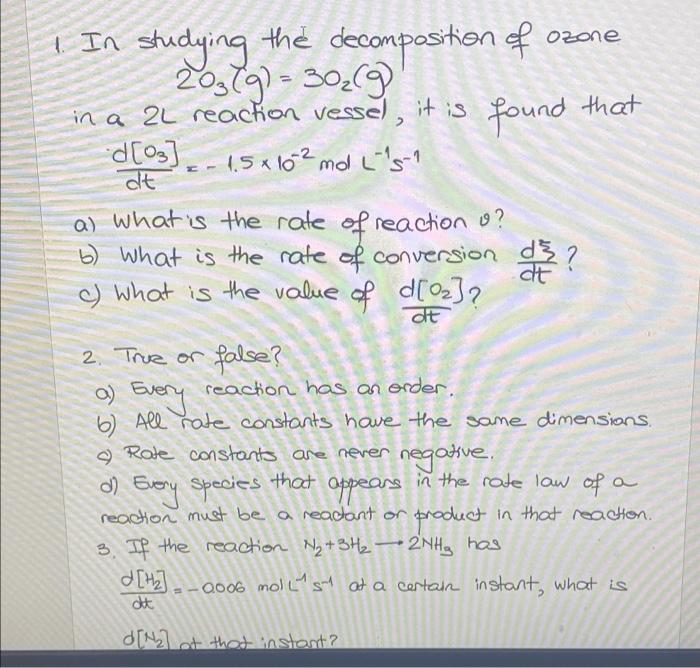 1. In studying the decomposition of ozone
2O₃(g) = 3O₂(g)
in a 2L reaction vessel, it is found that
d[O₃]/dt = -1.5 x 10⁻² mol L⁻¹s⁻¹
a) What is the rate of reaction υ?
b) What is the rate of conversion dξ/dt?
c) What is the value of d[O₂]/dt?
2. True or false?
a) Every reaction has an order.
b) All rate constants have the same dimensions.
c) Rate constants are never negative.
d) Every species that appears in the rate law of a
reaction must be a reactant or product in that reaction.
3. If the reaction N₂+3H₂ → 2NH₃ has
d[H₂]/dt = -0.006 mol L⁻¹ s⁻¹ at a certain instant, what is
d[N₂] at that instant?